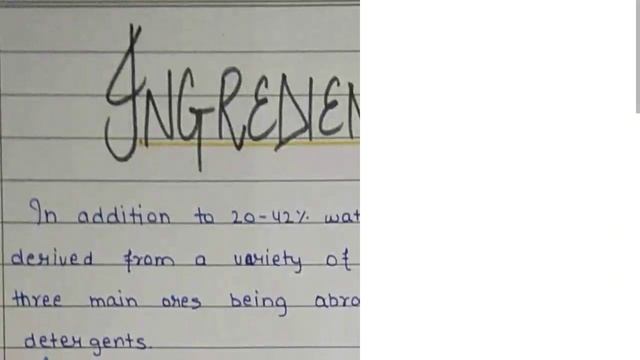 INGREDIEN
In addition to 20-42% wat
derived from a variety of
three main ores being abra
detergents.